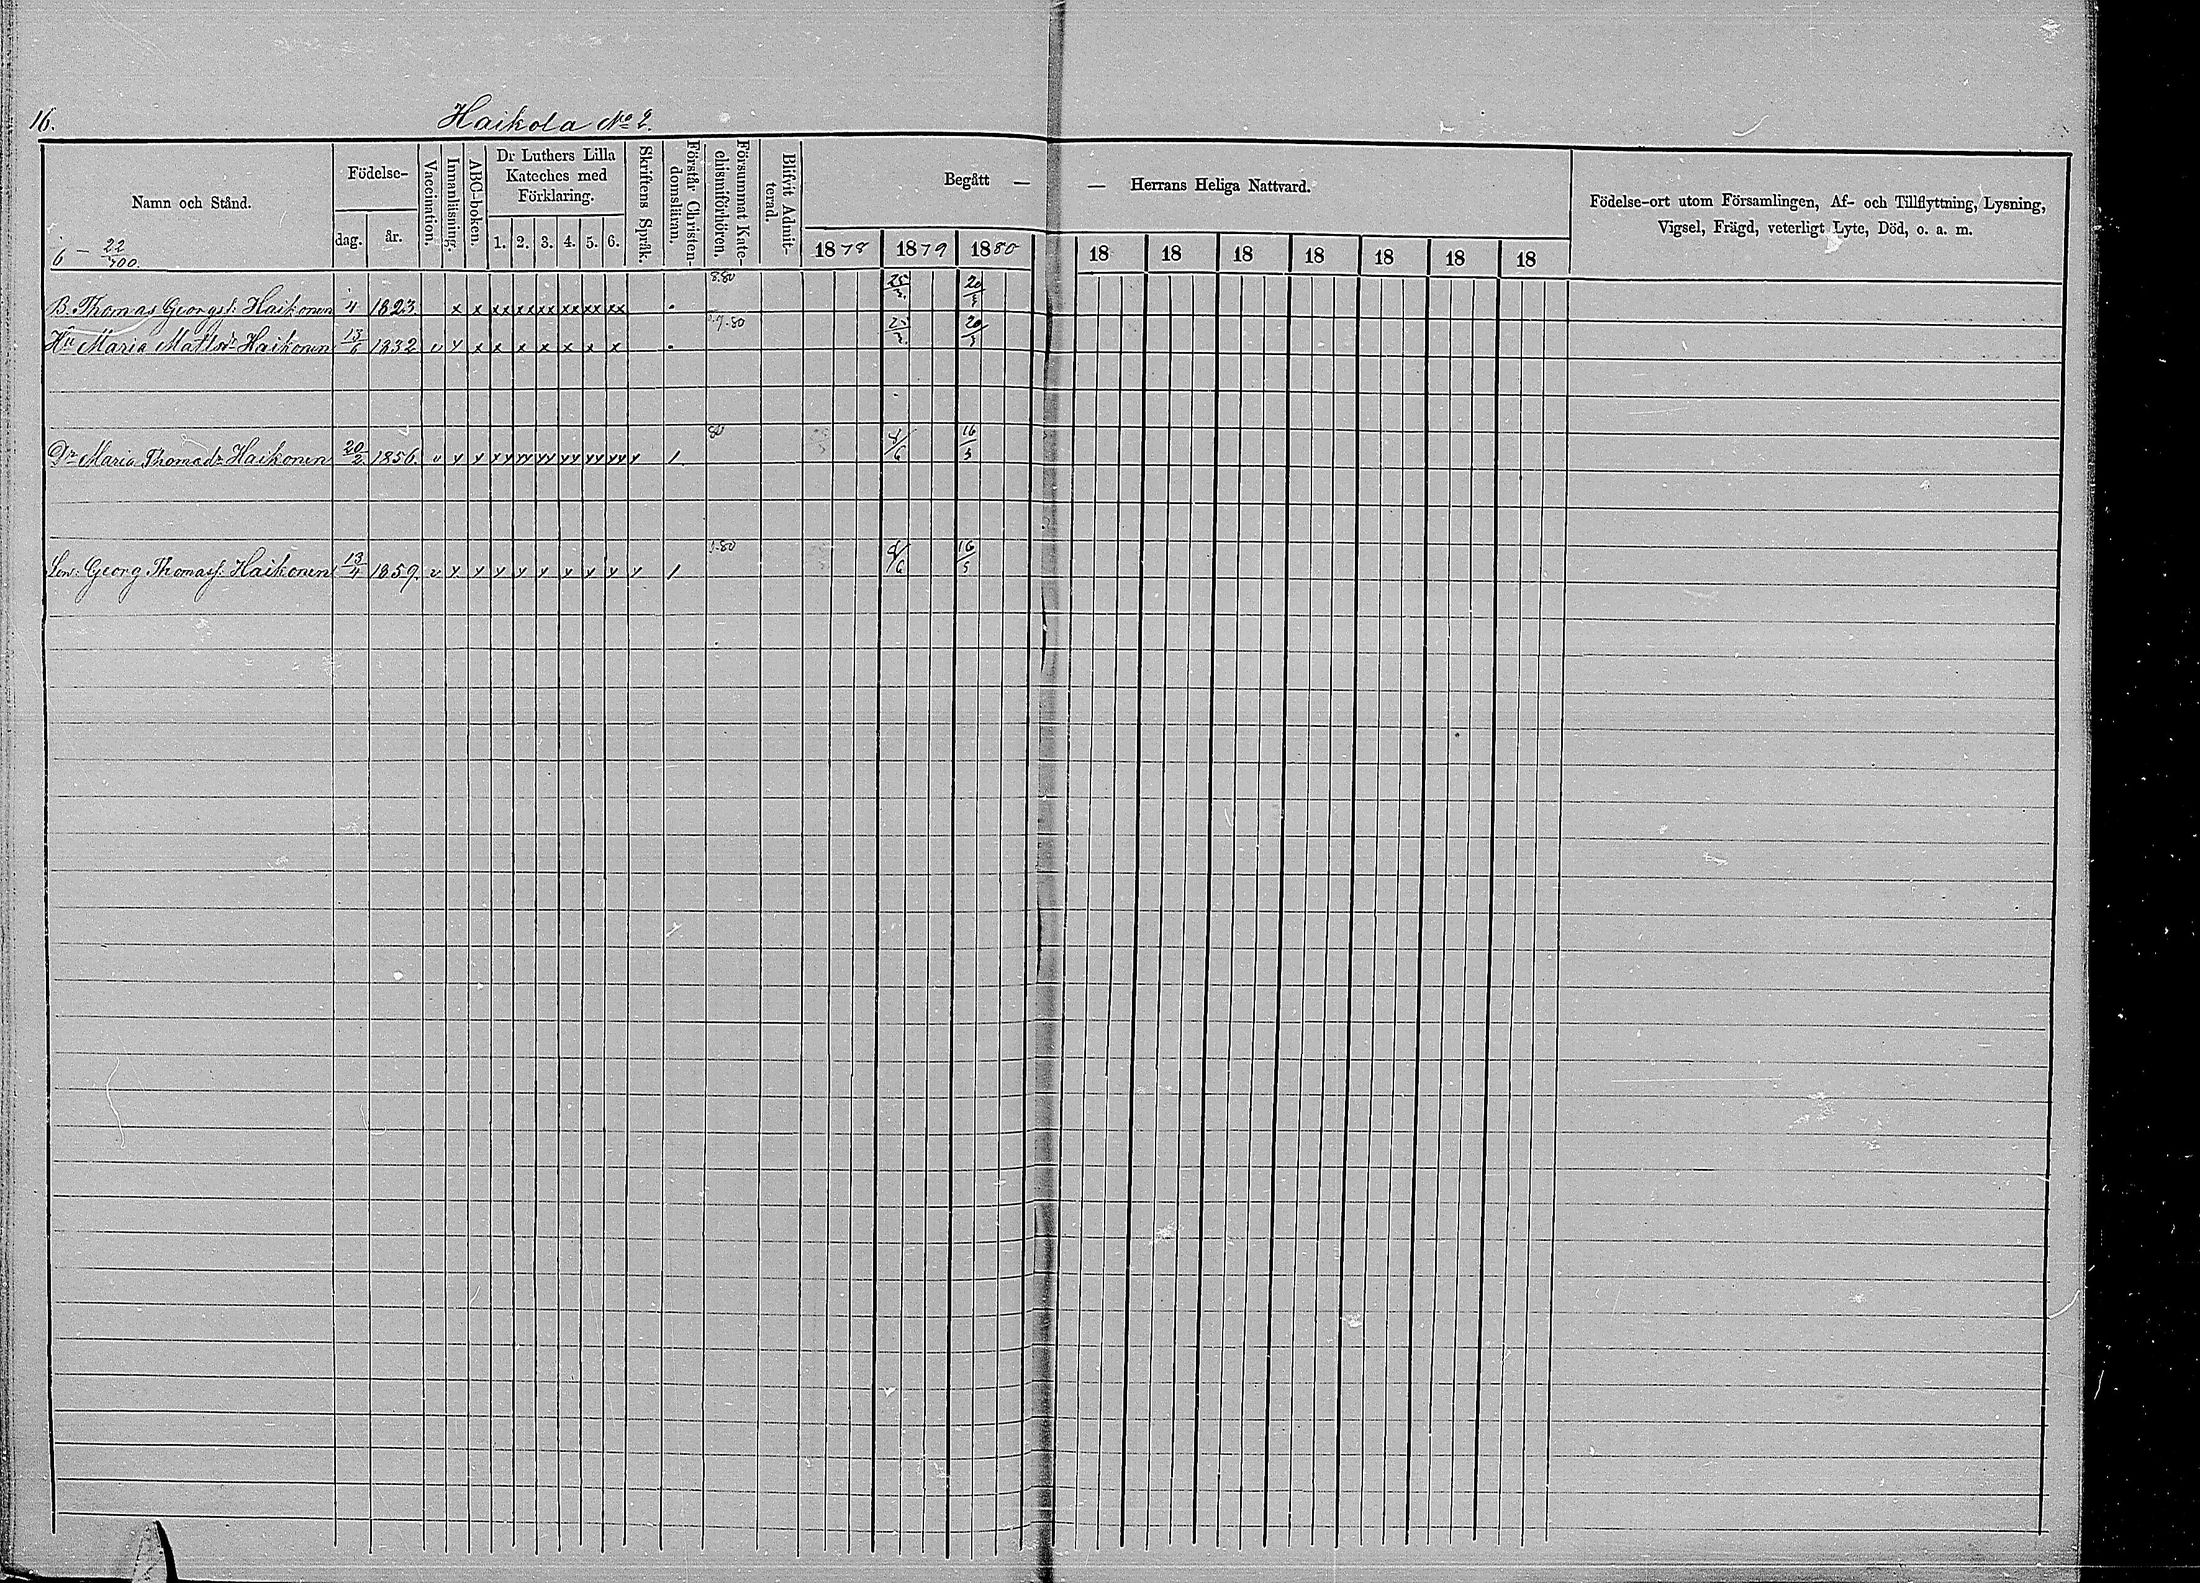 16. Haikola No 2.
Namn och Stånd. Födelse- dag. år. Vaccination. Innanläsning. ABC-boken. Dr Luthers Lilla Kateches med Förklaring. 1. 2. 3. 4. 5. 6. Skriftens Språk. Förstår Christendomsläran. Försummat Katechismiförhören. Blifvit Admitterad.
Begått — — Herrans Heliga Nattvard.
1878 1879 1880 18 18 18 18 18 18 18
Födelse-ort utom Församlingen, Af- och Tillflyttning, Lysning,
Vigsel, Frägd, veterligt Lyte, Död, o. a. m.
6 — 22/700.
B. Thomas Georgs: Haikonen 1823 x x xx xx xx xx xx xx 8.80 25/3. 20/3
Hu Maria Mattsdr Haikonen 13/6 1832 v y x x x x x x x 9.80 25/3. 20/3
Dr Maria Thomadr Haikonen 20/2 1856. v y y yy yy yy yy yy yy y 1 80 8/6 16/5
Son: Georg Thomass: Haikonen 13/4 1859. v y y y y y y y y y 1 80 8/6 16/5